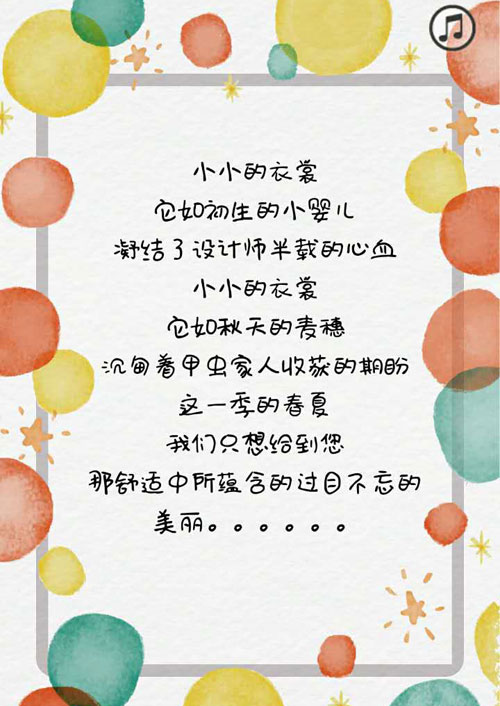 小小的衣裳
它如初生的小婴儿
凝结了设计师半载的心血
小小的衣裳
它如秋天的麦穗
沉甸着甲虫家人收获的期盼
这一季的春夏
我们只想给到您
那舒适中所蕴含的过目不忘的
美丽。。。。。。